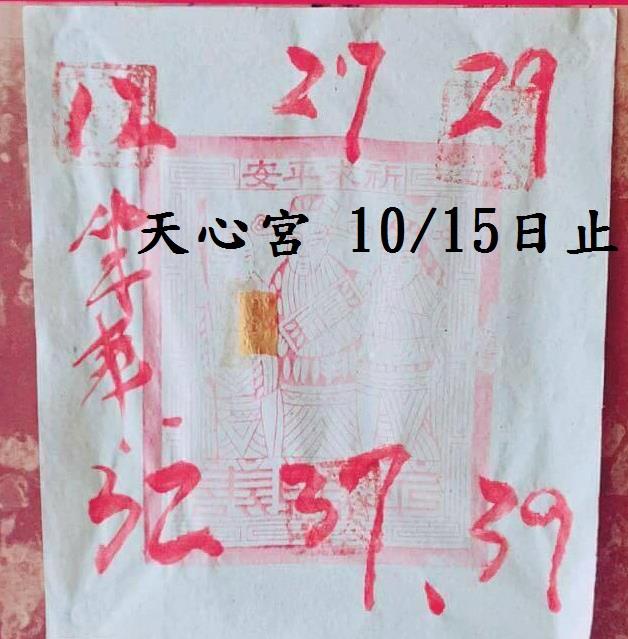 12 27 29
祈求平安
天心宮 10/15日止
32 37、39